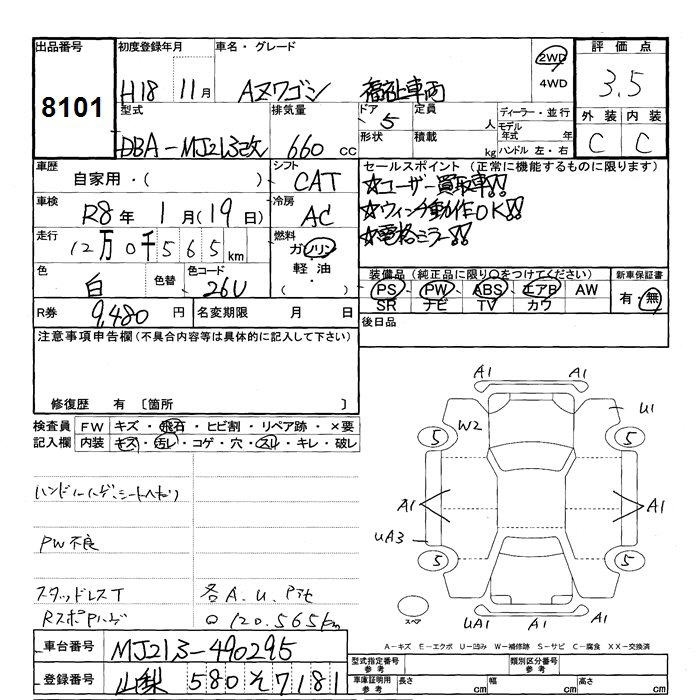 出品番号 初度登録年月 車名・グレード 2WD 評価点
8101 H18 11月 AZワゴン 福祉車両 4WD 3.5
型式 排気量 ドア 定員 ディーラー・並行 外装 内装
DBA-MJ21S改 660cc 5 人 モデル年式 年 C C
形状 積載 kg ハンドル 左・右
車歴 シフト セールスポイント (正常に機能するものに限ります)
自家用・( ) CAT ☆ユーザー買取車!!
車検 冷房 ☆ウィンチ動作OK!!
R8年 1月(19日) AC ☆電格ミラー!!
走行 燃料
12万0千565km ガソリン
軽油
・( )
色 色替 色コード 装備品 (純正品に限り○をつけてください) 新車保証書
白 26U PS PW ABS エアB AW 有・無
SR ナビ TV カワ
R券 9,480円 名変期限 月 日 後日品
注意事項申告欄(不具合内容等は具体的に記入して下さい)
修復歴 有 〔箇所 〕
検査員記入欄 FW キズ・飛石・ヒビ割・リペア跡・×要
内装 キズ・汚レ・コゲ・穴・スレ・キレ・破レ
PW不良
スタッドレスT 各A.U.
120,565km
A1 A1
W2 U1
5 5
A1 A1
UA3
5 5
スペア UA1 A1 A1
A-キズ E-エクボ U-凹み W-補修跡 S-サビ C-腐食 XX-交換済
車台番号 MJ21S-490295 型式指定番号 参考 類別区分番号 参考
登録番号 山梨 580 そ 7181 車庫証明用 参考 長さ cm 幅 cm 高さ cm